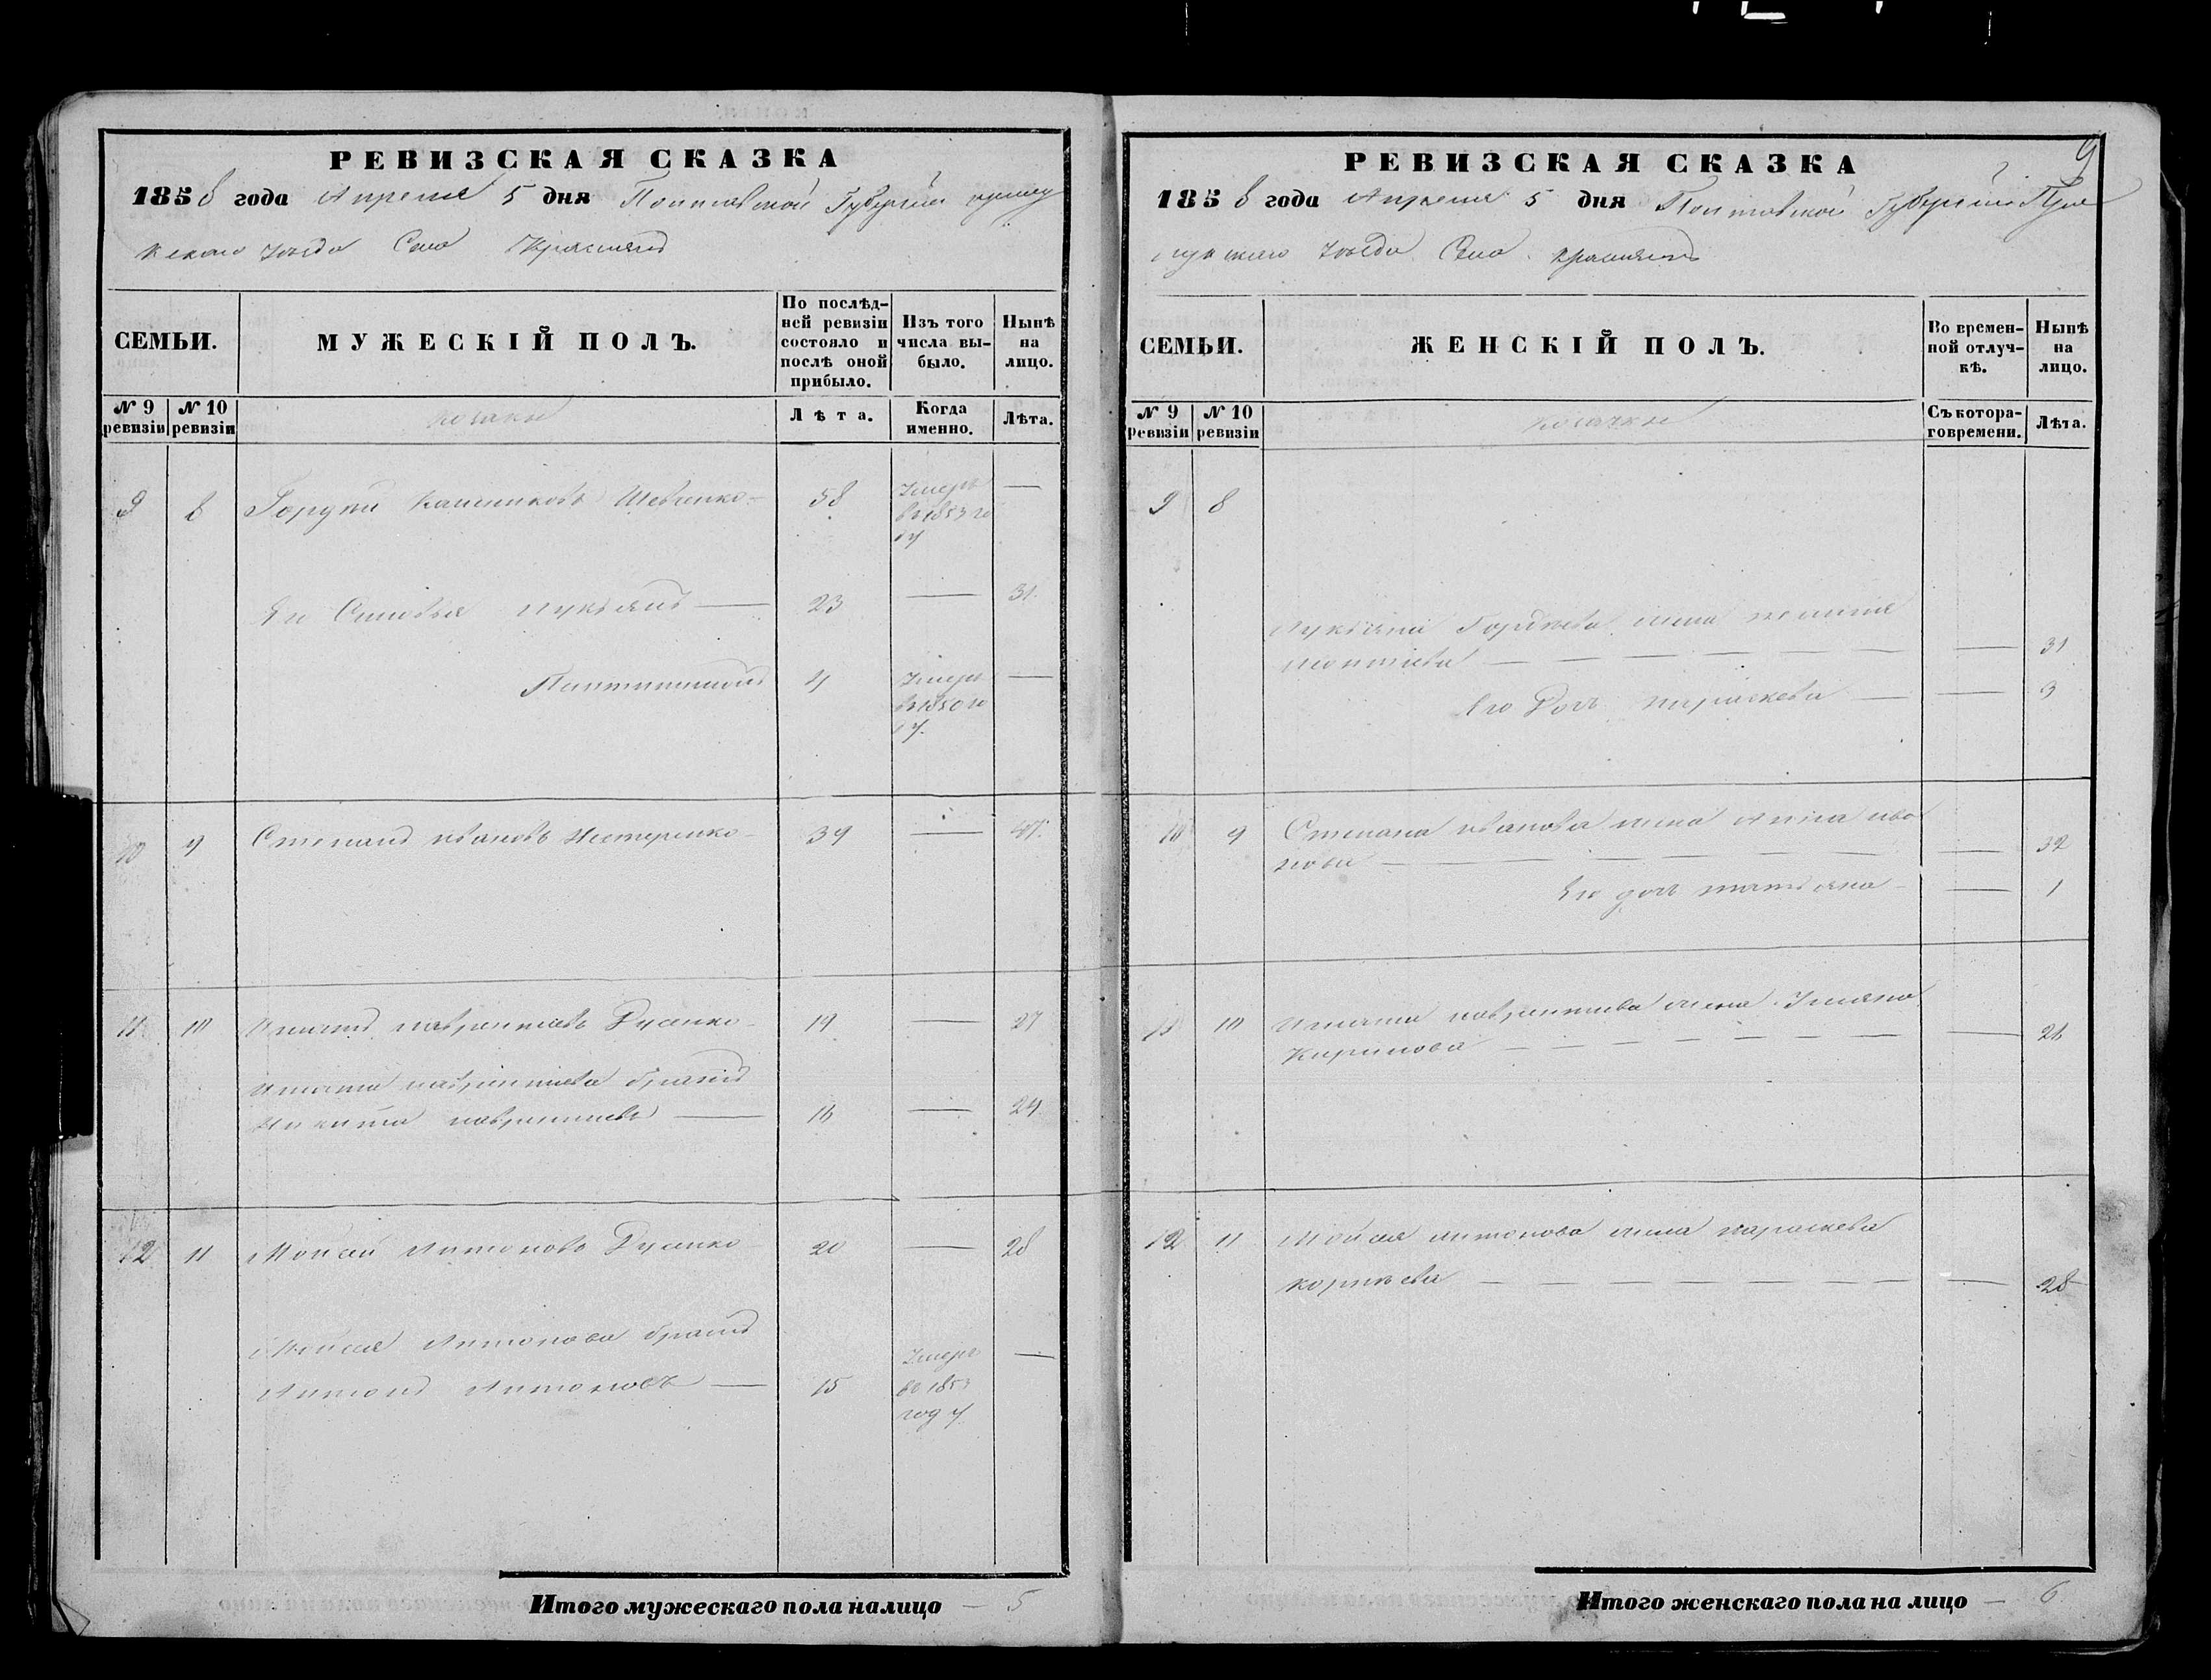 РЕВИЗСКАЯ СКАЗКА
1858 года Апреля 5 дня Полтавской Губернии
уезда Село
СЕМЬИ.
МУЖЕСКІЙ ПОЛЪ.
По послѣд-
ней ревизіи
состояло и
послѣ оной
прибыло.
Изъ того
числа вы-
было.
Нынѣ
на
лицо.
№ 9
ревизіи
№ 10
ревизіи
козаки
Лѣта.
Когда
именно.
Лѣта.
9 8 Шевченко 58 Умеръ
въ 1853 го
ду
Его Сыновья Лукьянъ 23 31
4 Умеръ
въ 1850 го
ду
10 9 Степанъ Ивановъ Нестеренко 39 47
11 10 Лаврентіевъ Дусенко 19 27
Лаврентіева братъ
Никита Лаврентіевъ 16 24
12 11 Мойсей Антоновъ Дусенко 20 28
Мойсея Антонова братъ
Антонъ Антоновъ 15 Умеръ
въ 1853
году
Итого мужескаго пола налицо 5
9
РЕВИЗСКАЯ СКАЗКА
1858 года Апреля 5 дня Полтавской Губерніи
уезда Село
СЕМЬИ.
ЖЕНСКІЙ ПОЛЪ.
Во времен-
ной отлуч-
кѣ.
Нынѣ
на
лицо.
№ 9
ревизіи
№ 10
ревизіи
козачки
Съ котора-
го времени.
Лѣта.
9 8
Лукьяна Гордѣева жена
31
Его Доч Параскева 3
10 9 Степана Иванова жена Анна Ива
нова 32
Его доч татьяна 1
11 10 Лаврентіева жена Ульяна
Кирилова 26
12 11 Мойсея Антонова жена параскева
28
Итого женскаго пола на лицо 6